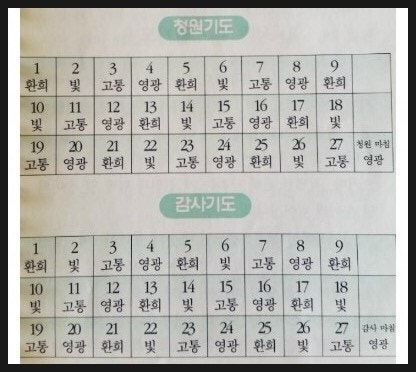 청원기도
1 2 3 4 5 6 7 8 9
환희 빛 고통 영광 환희 빛 고통 영광 환희
10 11 12 13 14 15 16 17 18
빛 고통 영광 환희 빛 고통 영광 환희 빛
19 20 21 22 23 24 25 26 27 청원 마침
고통 영광 환희 빛 고통 영광 환희 빛 고통 영광
감사기도
1 2 3 4 5 6 7 8 9
환희 빛 고통 영광 환희 빛 고통 영광 환희
10 11 12 13 14 15 16 17 18
빛 고통 영광 환희 빛 고통 영광 환희 빛
19 20 21 22 23 24 25 26 27 감사 마침
고통 영광 환희 빛 고통 영광 환희 빛 고통 영광